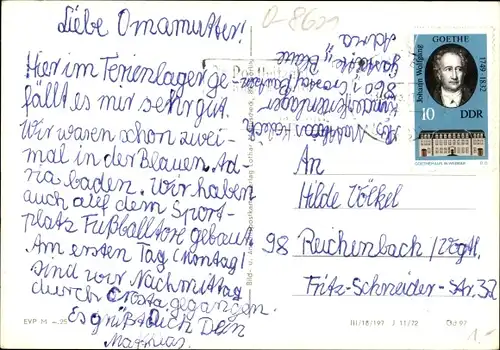 Liebe Omamutter!
Hier im Ferienlager ge-
fällt es mir sehr gut.
Wir waren schon zwei-
mal in der Blauen Ad-
ria baden. Wir haben
auch auf dem Sport-
platz Fußballtore gebaut.
Am ersten Tag (Montag)
sind wir Nachmittag
durch Crosta gegangen.
Es grüßt Dich Dein
Matthias.
EVP M -,25
O-8601
Kinderferienlager
8601 Crosta/Bautzen
Gaststätte "Blaue
Adria"
Johann Wolfgang
GOETHE
1749-1832
10 DDR
GOETHEHAUS IN WEIMAR
An
Hilde Völkel
98 Reichenbach/Vogtl.
Fritz-Schneider-Str. 32
III/18/197 J 11/72
1.-